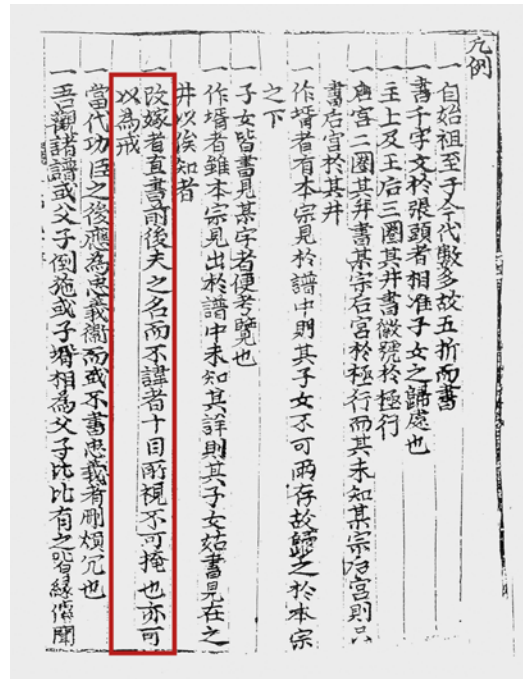 凡例
一自始祖至于今代數多故五折而書
一書千字文於張頭者相准子女之歸處也
一主上及王后三圈其井書徽號於極行
一庶宮二圈其井書某宗后宮於極行而其未知某宗后宮則只
書后宮於其井
一作壻者有本宗見於譜中則其子女不可兩存故歸之於本宗
之下
一子女皆書見某字者便考覽也
一作壻者雖本宗見出於譜中未知其詳則其子女姑書見在之
井以俟知者
一改嫁者直書前後夫之名而不諱者十目所視不可掩也亦可
以為戒
一當代功臣之後應為忠義衛而或不書忠義者刪煩冗也
一吾觀諸譜或父子倒施或子壻相為父子比比有之皆緣傳聞